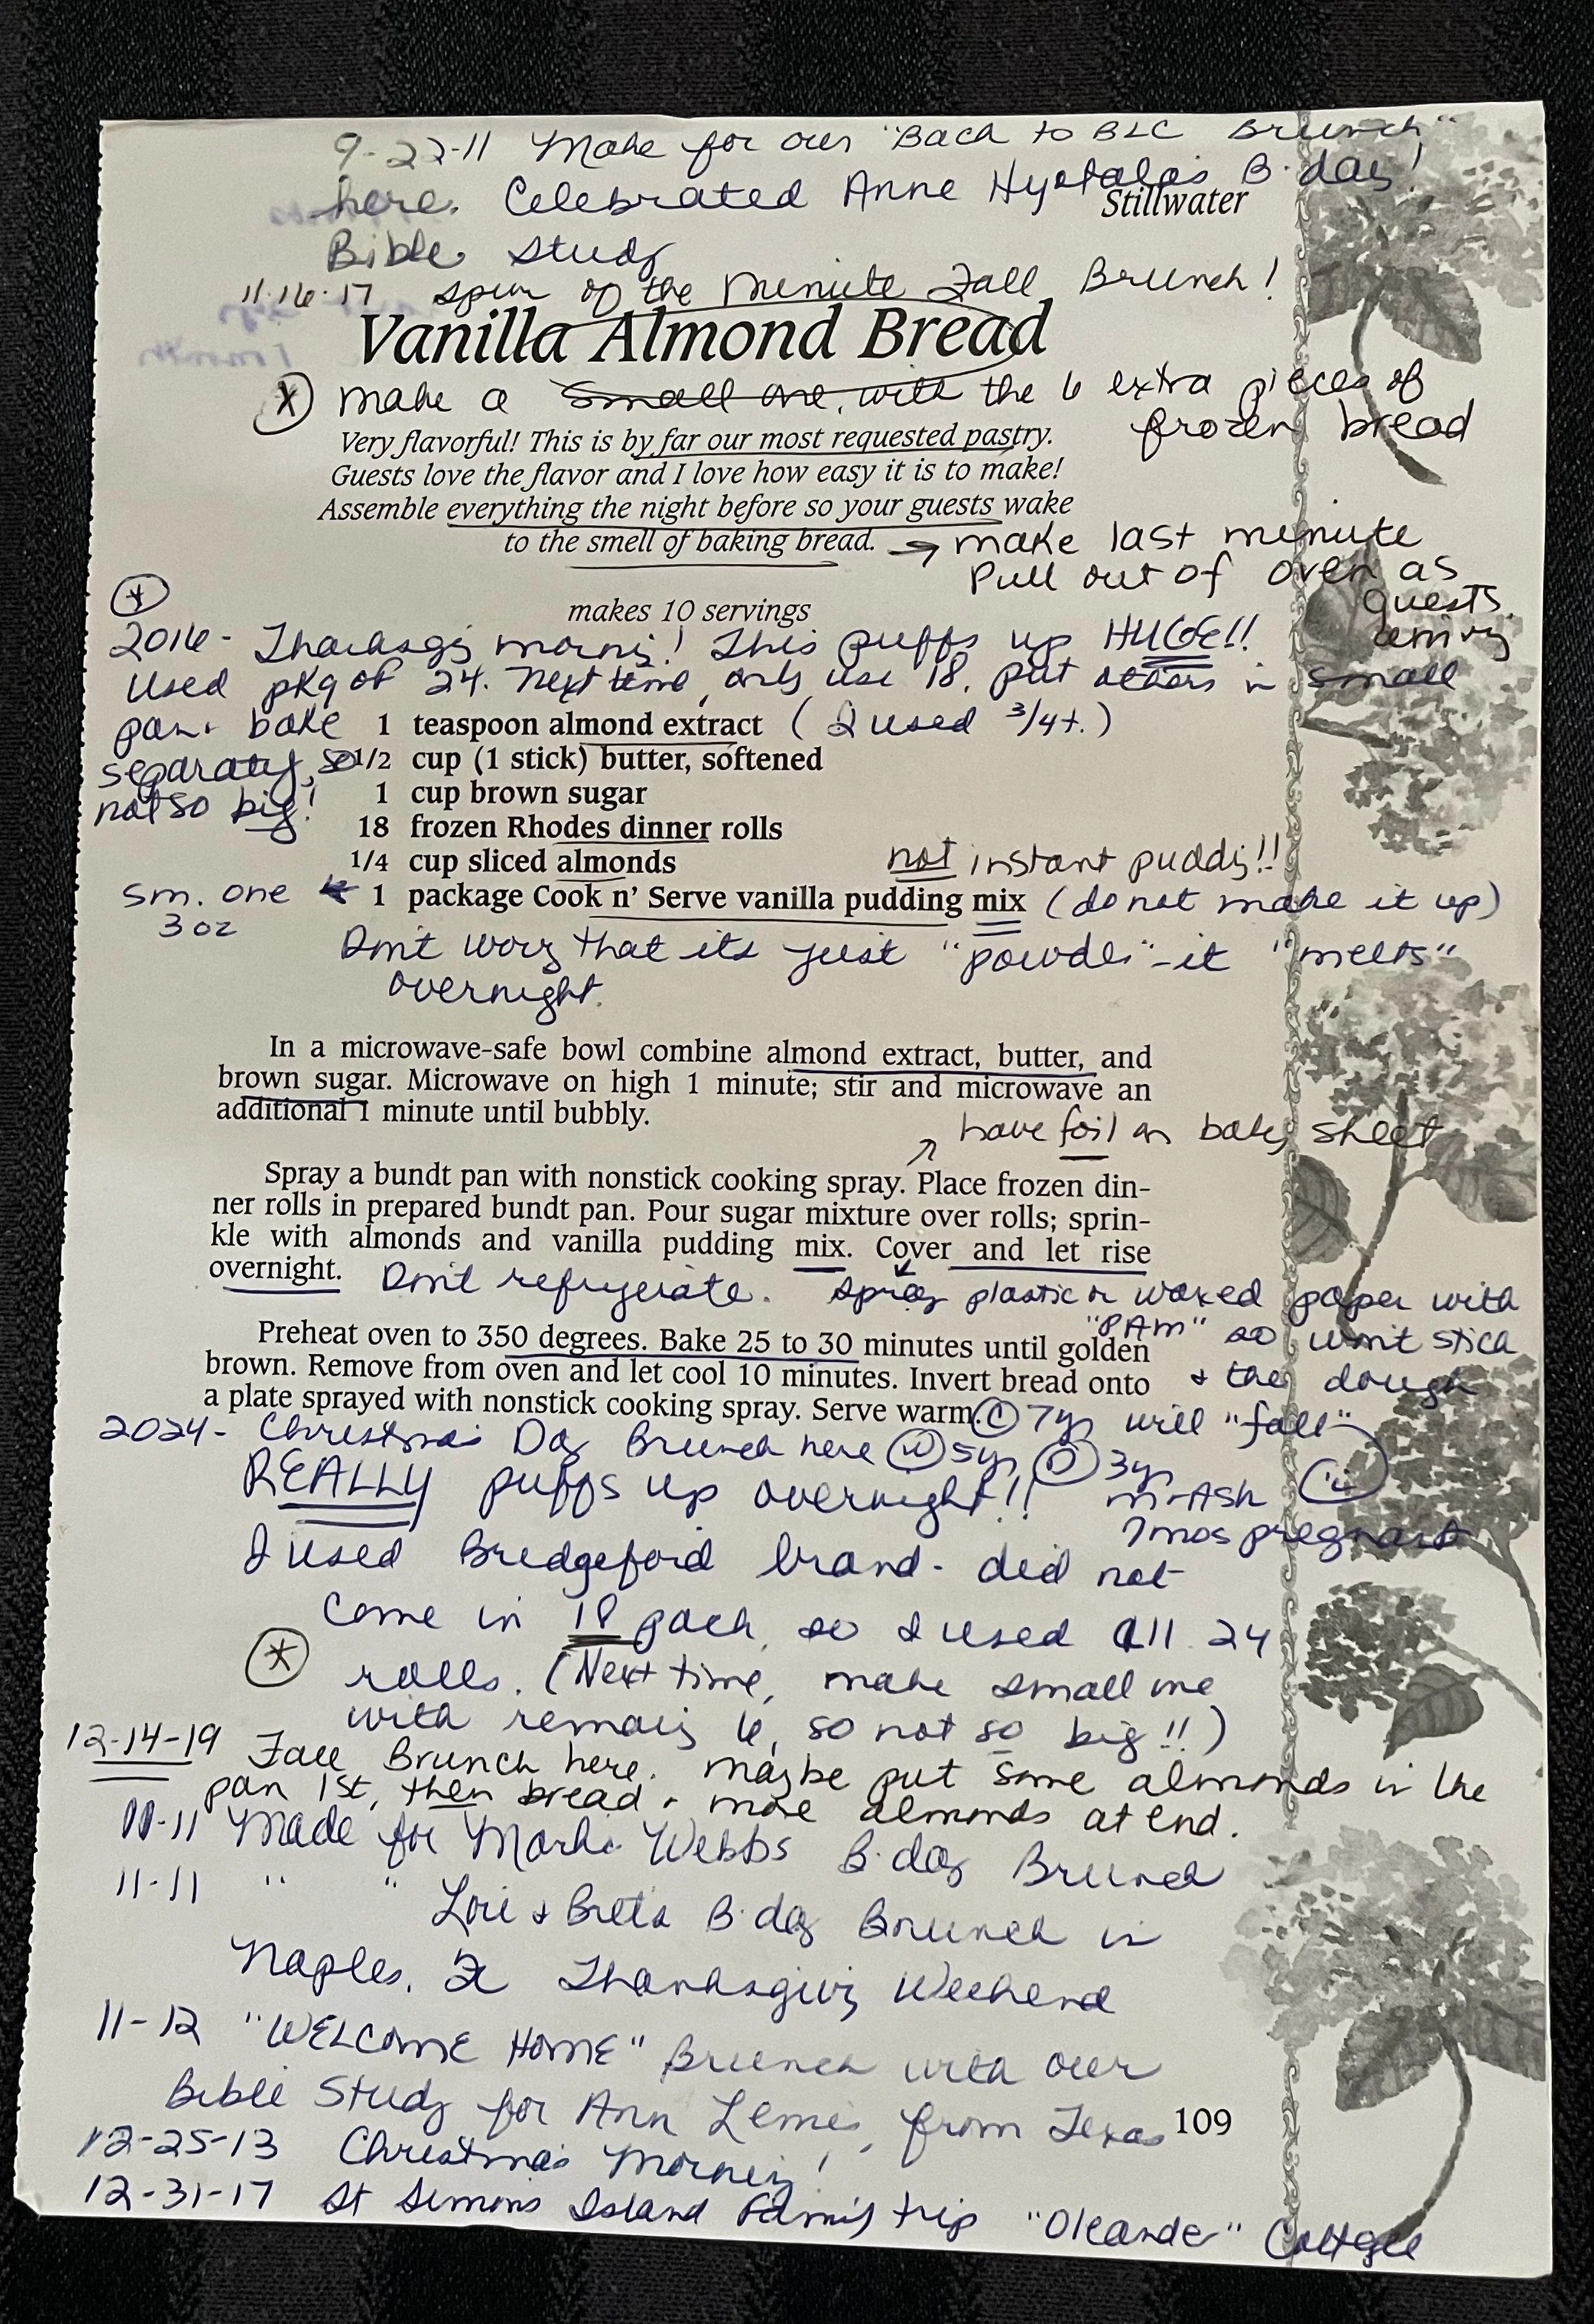 9-22-11 Make for our "Back to BLC Brunch"
here. Celebrated Anne B-day!
Stillwater
Bible Study
11-16-17 spur of the minute Fall Brunch!
Vanilla Almond Bread
make a small one, with the 6 extra pieces of
frozen bread
Very flavorful! This is by far our most requested pastry.
Guests love the flavor and I love how easy it is to make!
Assemble everything the night before so your guests wake
to the smell of baking bread. → make last minute
Pull out of oven as
guests
arriving
makes 10 servings
2016- Thanksg morng! This puffs up HUGE!!
Used pkg of 24. Next time, only use 18. put others in small
pan + bake
separately, so
not so big!
1 teaspoon almond extract (I used 3/4 t.)
1/2 cup (1 stick) butter, softened
1 cup brown sugar
18 frozen Rhodes dinner rolls
1/4 cup sliced almonds
not instant puddg!!
sm. one
3 oz
1 package Cook n' Serve vanilla pudding mix (do not make it up)
Don't worry that its just "powder" - it "melts"
overnight.
In a microwave-safe bowl combine almond extract, butter, and
brown sugar. Microwave on high 1 minute; stir and microwave an
additional 1 minute until bubbly.
have foil on bakg sheet
Spray a bundt pan with nonstick cooking spray. Place frozen din-
ner rolls in prepared bundt pan. Pour sugar mixture over rolls; sprin-
kle with almonds and vanilla pudding mix. Cover and let rise
overnight. Don't refrigerate. Spray plastic or waxed paper with
"PAM" so won't stick
Preheat oven to 350 degrees. Bake 25 to 30 minutes until golden
brown. Remove from oven and let cool 10 minutes. Invert bread onto
+ the dough
a plate sprayed with nonstick cooking spray. Serve warm.
will "fall"
C 7yr
2024- Christmas Day Brunch here W 5yr P 3yr
REALLY puffs up overnight!! M-Ash
7mos pregnant
I used Bridgeford brand - did not
come in 18 pack, so I used all 24
rolls. (Next time, make small one
with remaing 6, so not so big!!)
12-14-19 Fall Brunch here. Maybe put some almonds in the
pan 1st, then bread + more almonds at end.
11 Made for Webbs B-day Brunch
11-11 " " Lori + Bret's B-day Brunch in
Naples, FL Thanksgiving Weekend
11-12 "WELCOME HOME" Brunch with our
Bible Study for Ann from Texas
109
12-25-13 Christmas Morning!
12-31-17 St Simons Island Family trip "Oleander" Cottage